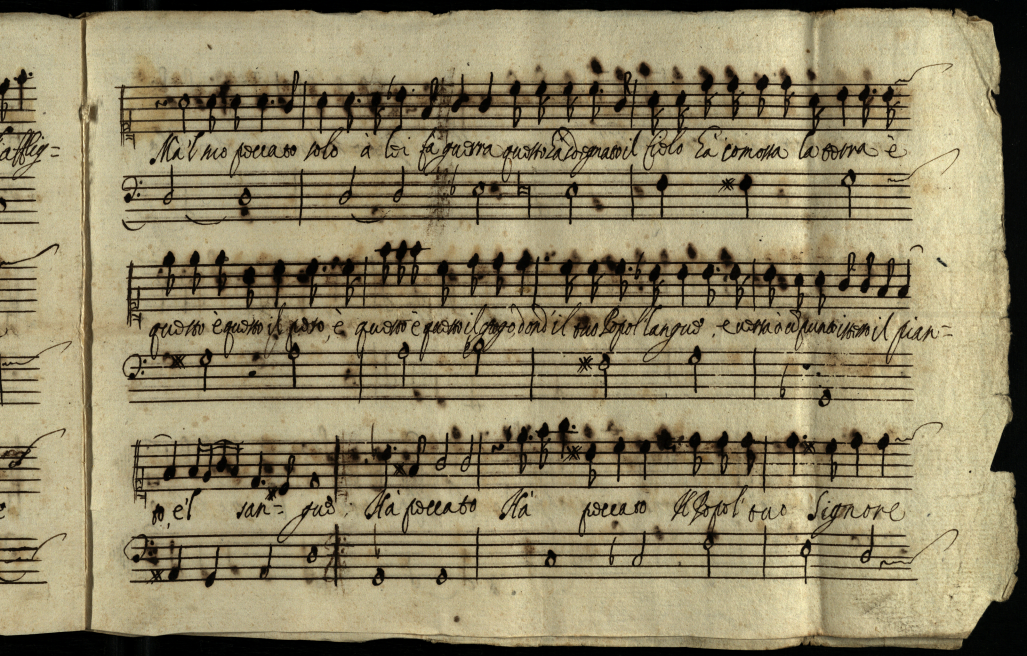 l'afflig=
Ma'l mio peccato solo à lei fà guerra questo hà sdegnato il Cielo hà comossa la terra è
questo è questo il peso, è questo è questo il giogo dond'il tuo Popol langue, e verrà à il pian=
to, e'l san= gue; Hà peccato Hà peccato Il Popol tuo Signore